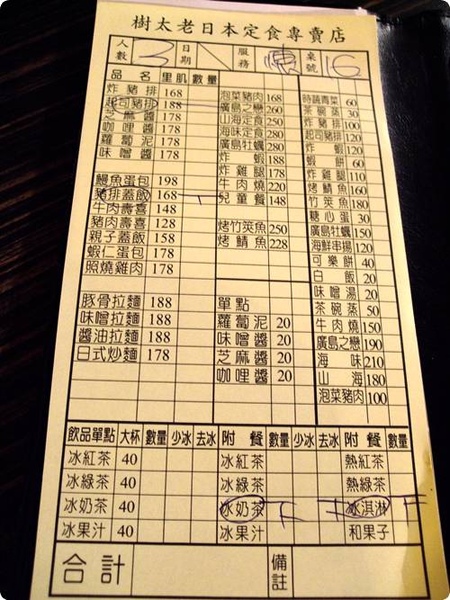 樹太老日本定食專賣店
人數 3 日期 服務 桌號 16
品名 里肌 數量
炸豬排 168
起司豬排 188
芝麻醬 178
咖哩醬 178
蘿蔔泥 178
味噌醬 178
鰻魚蛋包 198
豬排蓋飯 168
牛肉壽喜 148
豬肉壽喜 128
親子蓋飯 158
蝦仁蛋包 178
照燒雞肉 178
豚骨拉麵 188
味噌拉麵 188
醬油拉麵 188
日式炒麵 178
泡菜豬肉 168
廣島之戀 260
山海定食 250
海味定食 280
廣島牡蠣 280
炸蝦 188
炸雞腿 178
牛肉燒 220
兒童餐 148
烤竹筴魚 250
烤鯖魚 228
單點
蘿蔔泥 20
味噌醬 20
芝麻醬 20
咖哩醬 20
時蔬青菜 60
茶碗蒸 30
炸豬排 100
起司豬排 120
炸蝦 120
蝦餅 60
炸雞腿 110
烤鯖魚 160
竹筴魚 180
糖心蛋 30
廣島牡蠣 150
海鮮串揚 120
可樂餅 40
白飯 20
味噌湯 20
茶碗蒸 50
牛肉燒 150
廣島之戀 190
海味 210
山海 180
泡菜豬肉 100
飲品單點 大杯 數量 少冰 去冰 附餐 數量 少冰 去冰 附餐 數量
冰紅茶 40 冰紅茶 熱紅茶
冰綠茶 40 冰綠茶 熱綠茶
冰奶茶 40 冰奶茶 下 下 冰淇淋 下
冰果汁 40 冰果汁 和果子
合計 備註